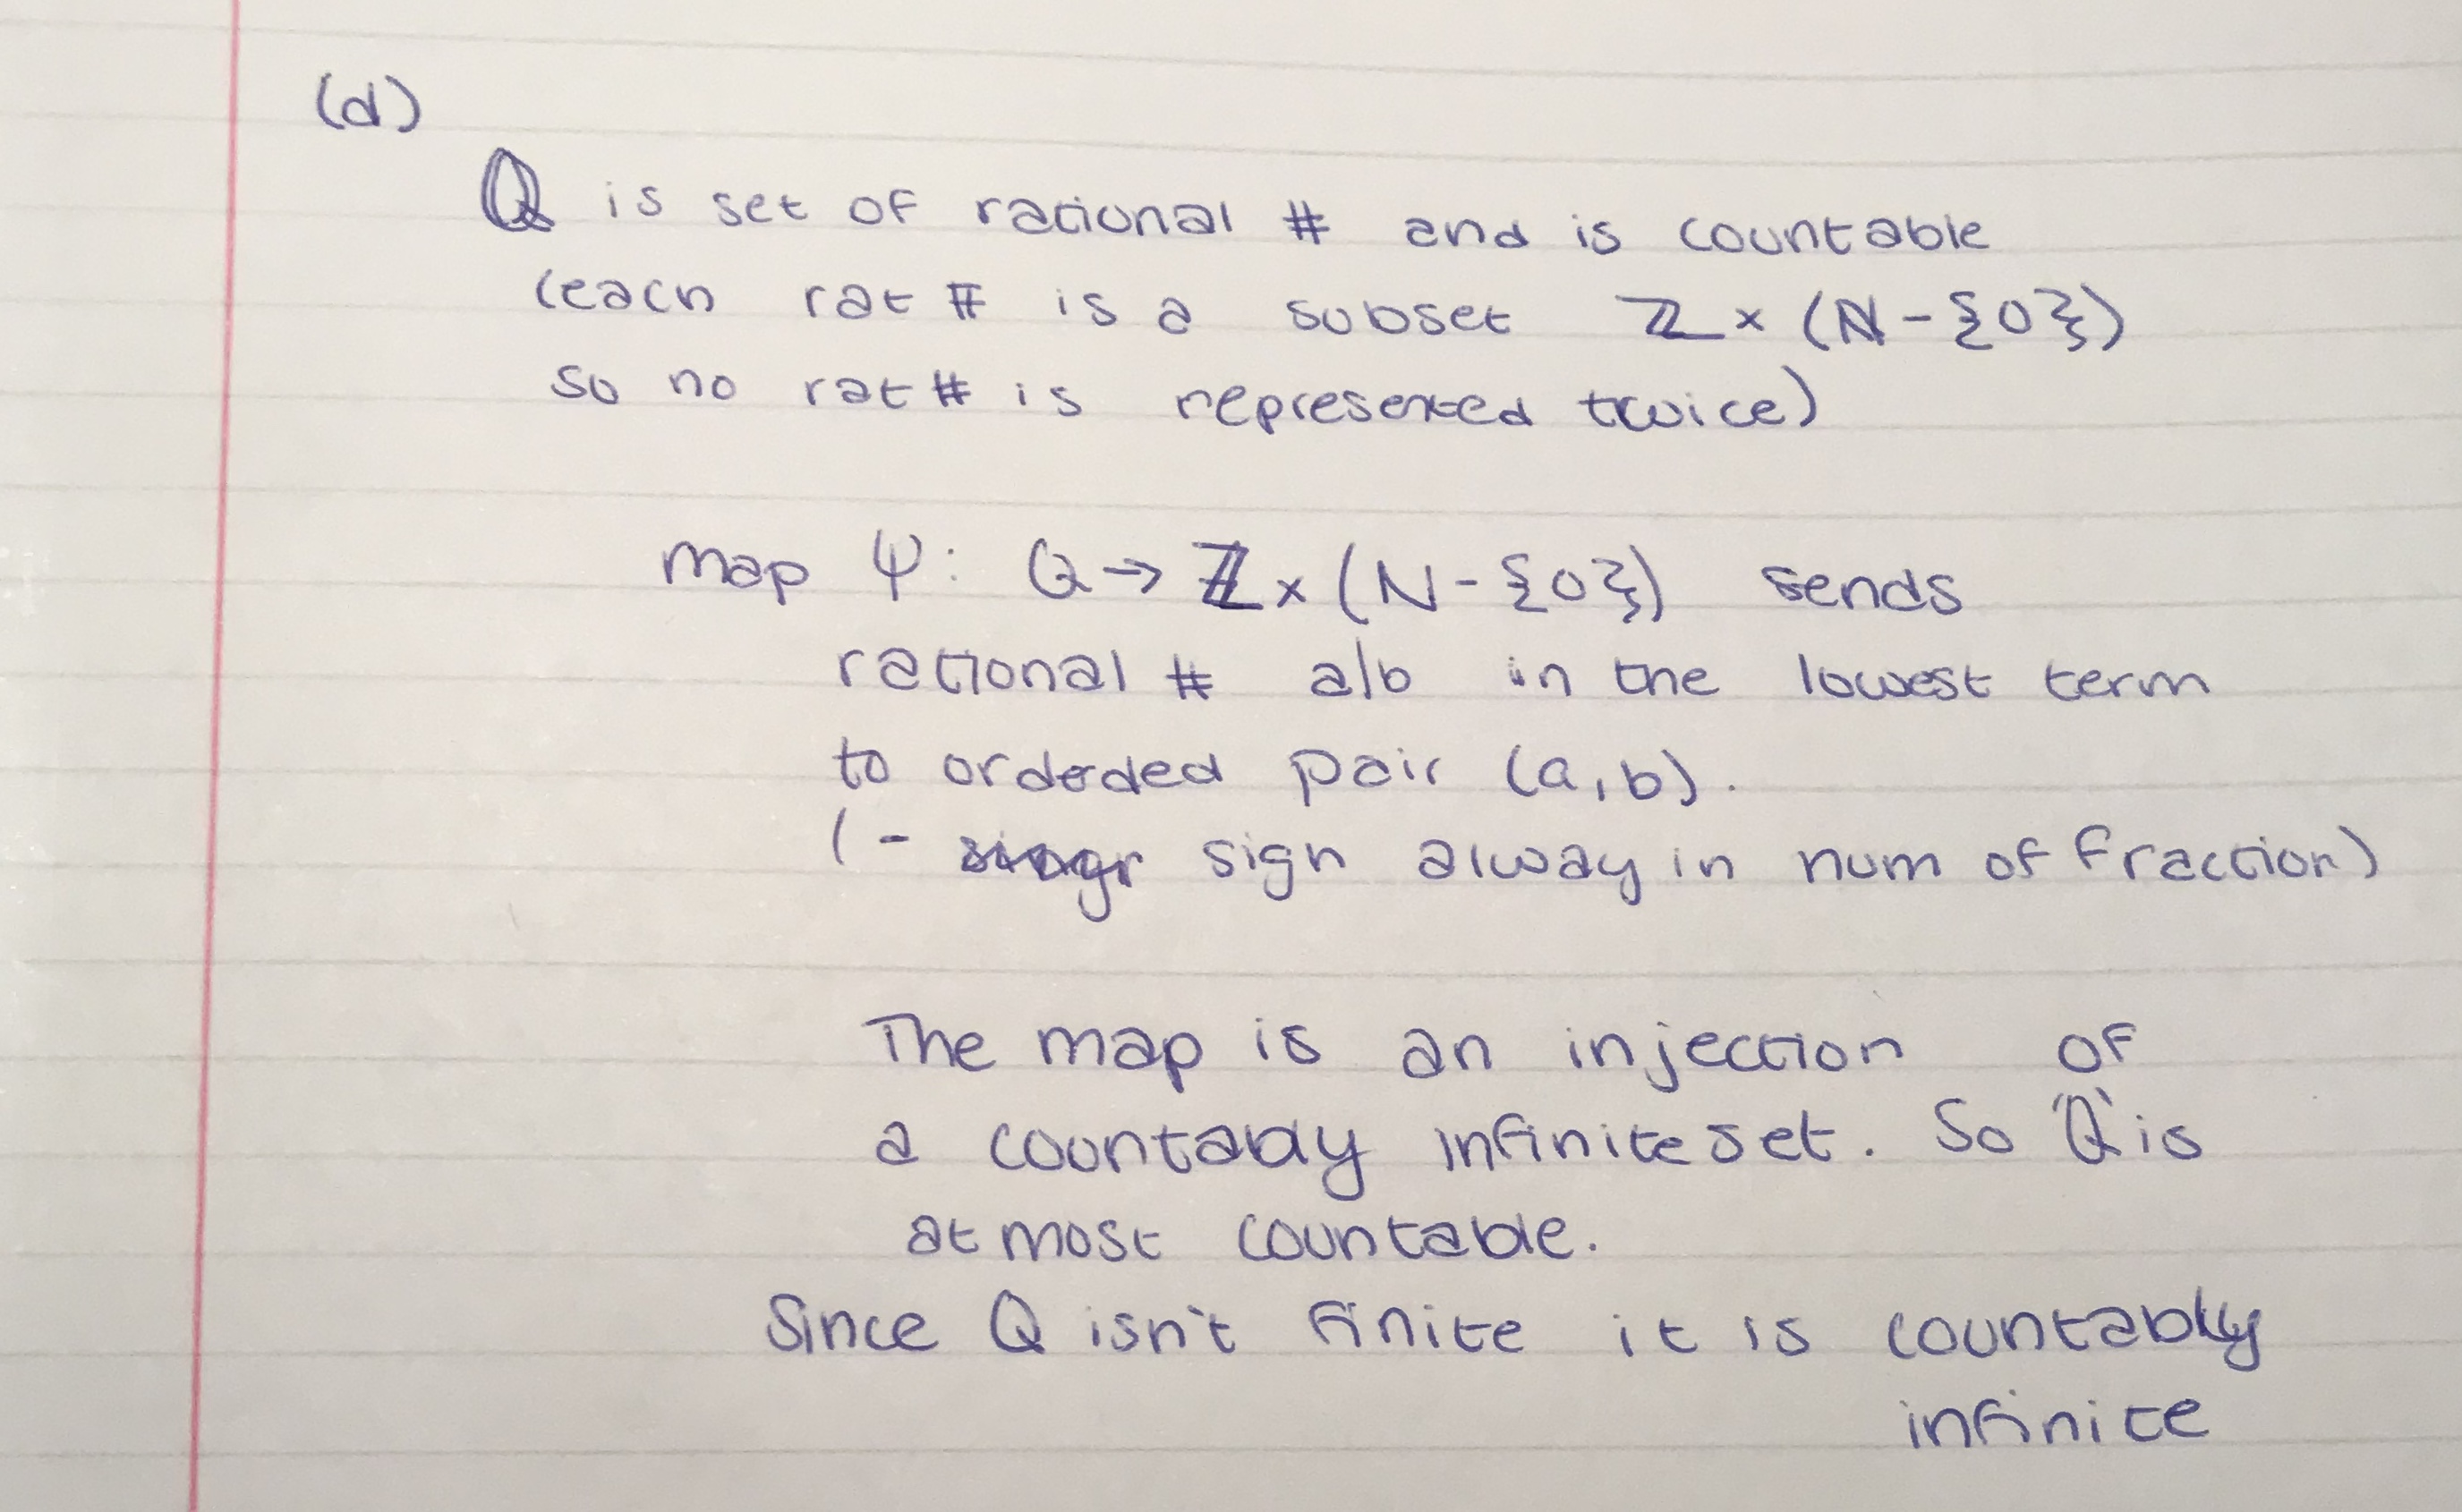 (d)
ℚ is set of rational # and is countable
(each rat # is a subset ℤ × (ℕ - {0})
so no rat # is represented twice)
map Ψ: Q → ℤ × (N - {0}) sends
rational # a/b in the lowest term
to ordeded pair (a,b).
( - sign alway in num of fraction)
The map is an injection of
a countably infinite set. So Q is
at most countable.
Since Q isn't finite it is countably
infinite